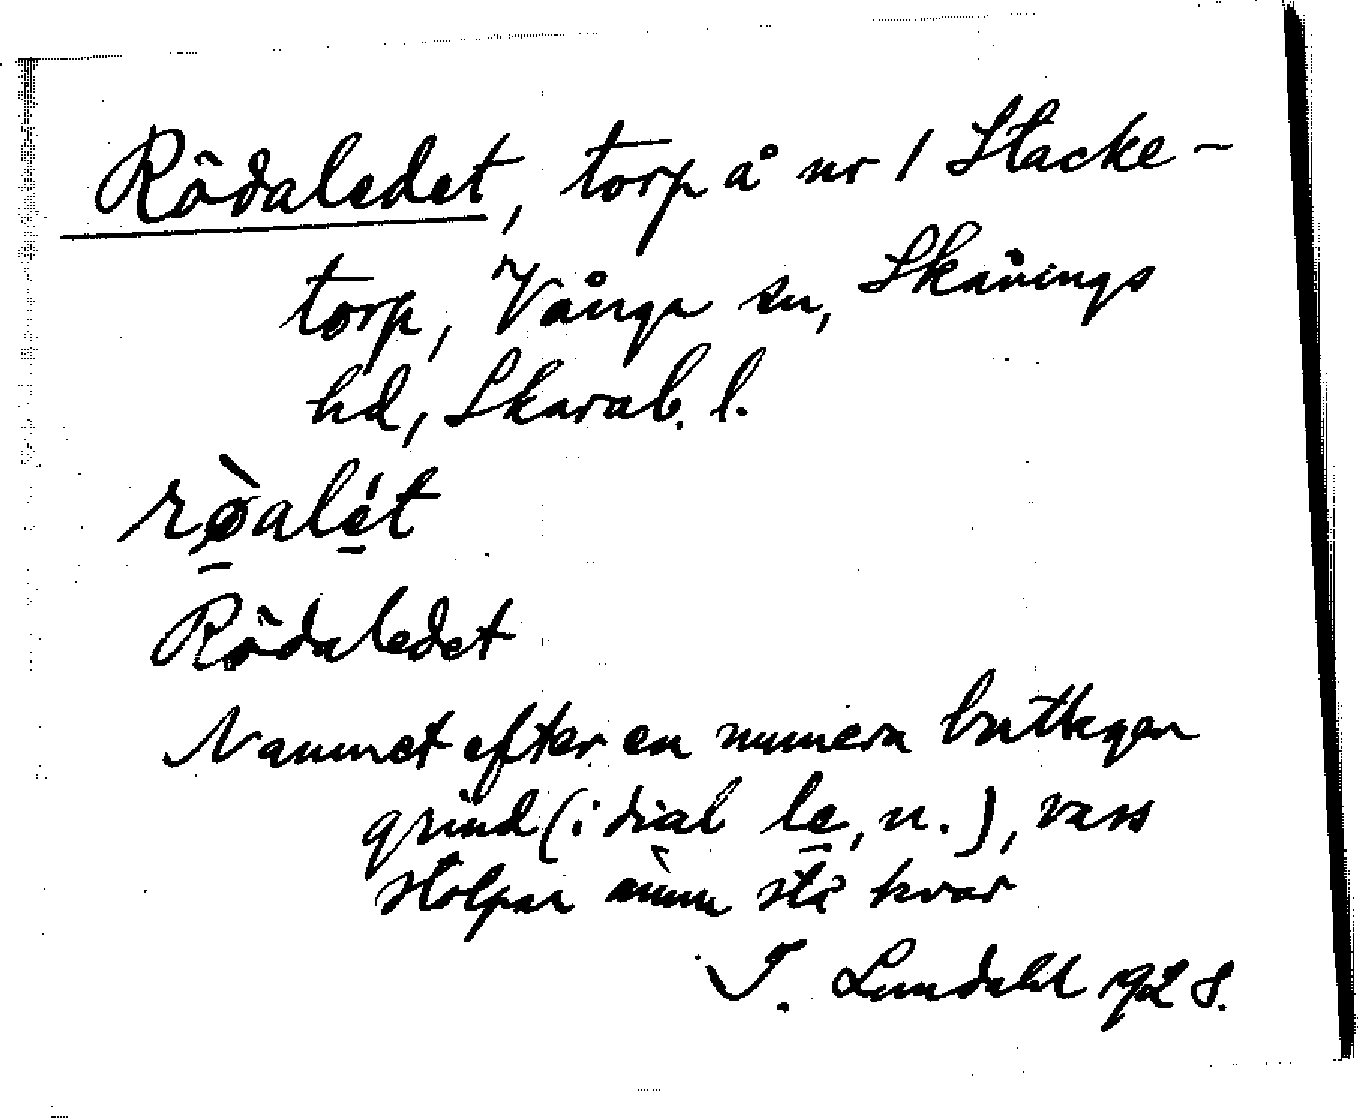 Rödaledet, torp å nr 1 Stacke-
torp, Vånga sn, Skånings
hd, Skarab. l.
rø̀alét
Rödaledet
Namnet efter en numera borttagen
grind (i dial le, n.), vars
stolpar ännu stå kvar
I. Lundahl 1928.